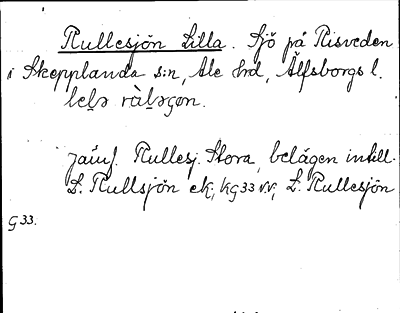 Rullesjön Lilla. Sjö på Risveden
i Skepplanda s:n, Ale hrd, Älfsborgs l.
Jämf. Rullesj. Stora, belägen intill.
L. Rullsjön ek, kG33 v.v, L. Rullesjön
G33.